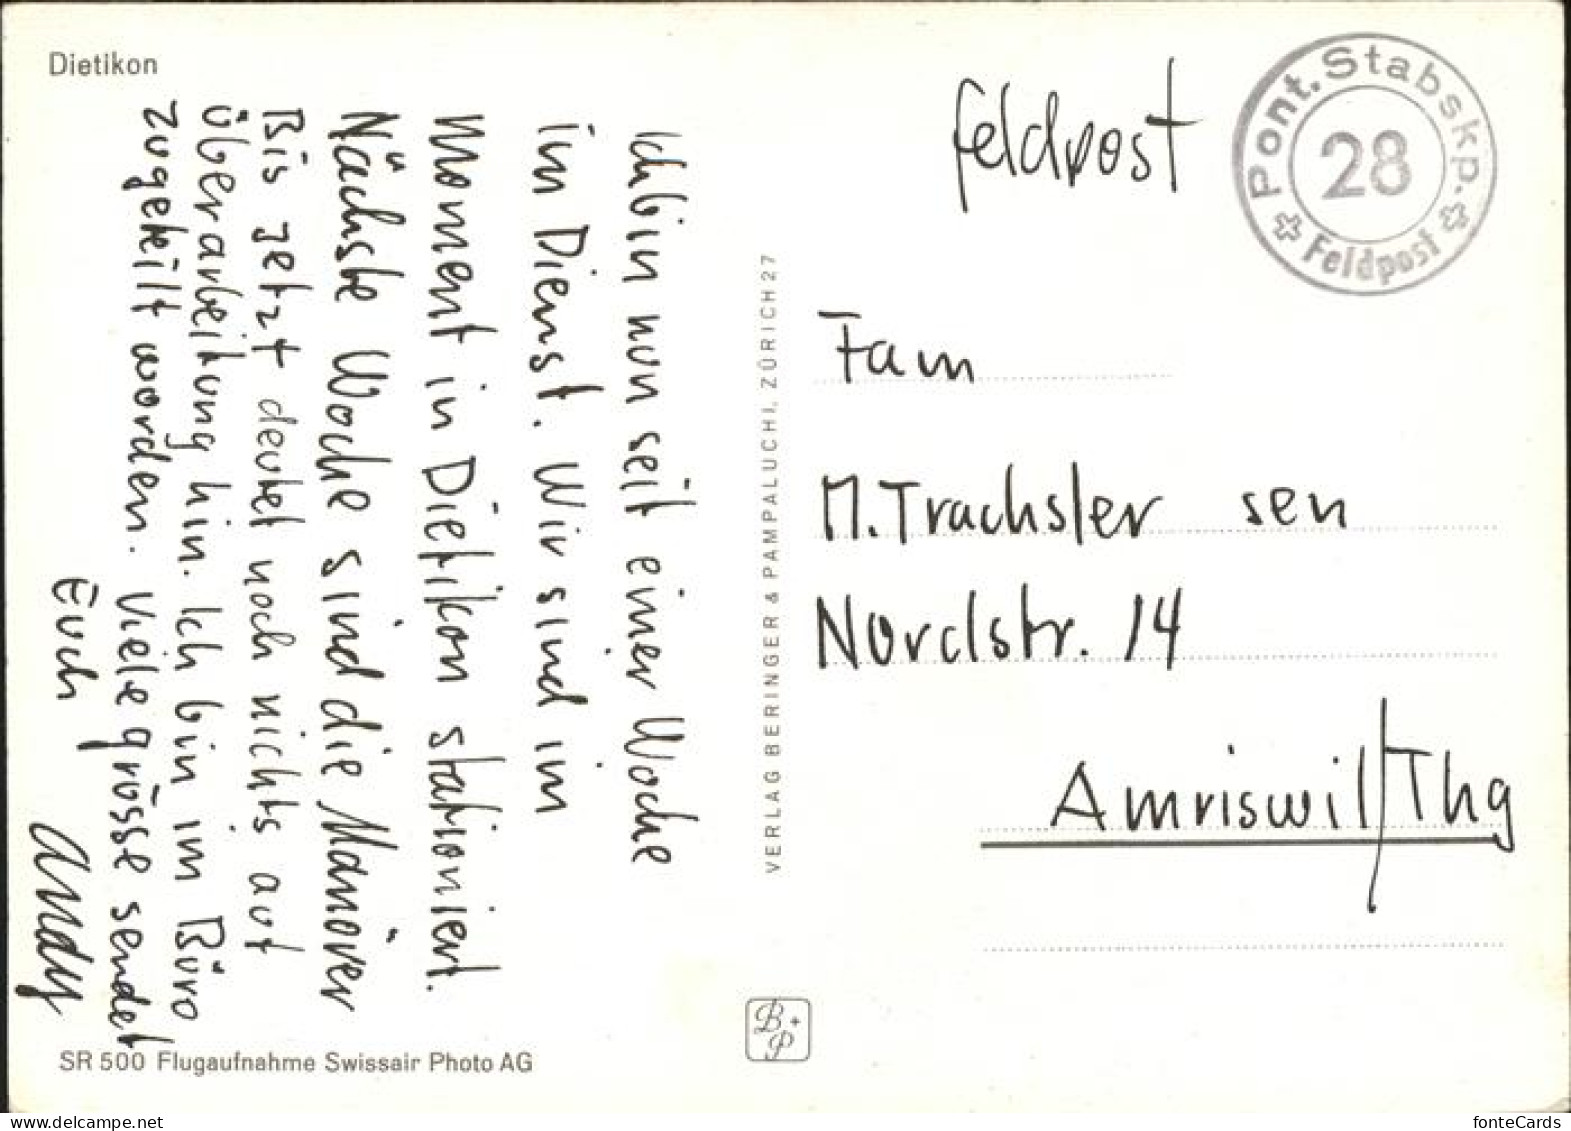 Dietikon
Ich bin nun seit einer Woche
im Dienst. Wir sind im
Moment in Dietikon stationiert.
Nächste Woche sind die Manöver
Bis jetzt deutet noch nichts auf
überarbeitung hin. Ich bin im Büro
zugeteilt worden. Viele grüsse sendet
Euch Andy
SR 500 Flugaufnahme Swissair Photo AG
VERLAG BERINGER & PAMPALUCHI, ZÜRICH 27
B+P
feldpost
Pont. Stabskp.
28
Feldpost
Fam
M. Trachsler sen
Nordstr. 14
Amriswil/Thg
www.delcampe.net
fonteCards